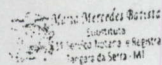 Maria Mercedes Batista
Substituta
Serviço Notarial e Registral
Tangará da Serra - MT